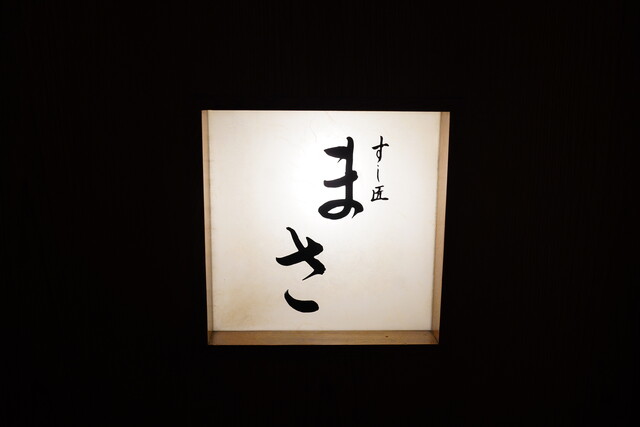 すし匠
まさ